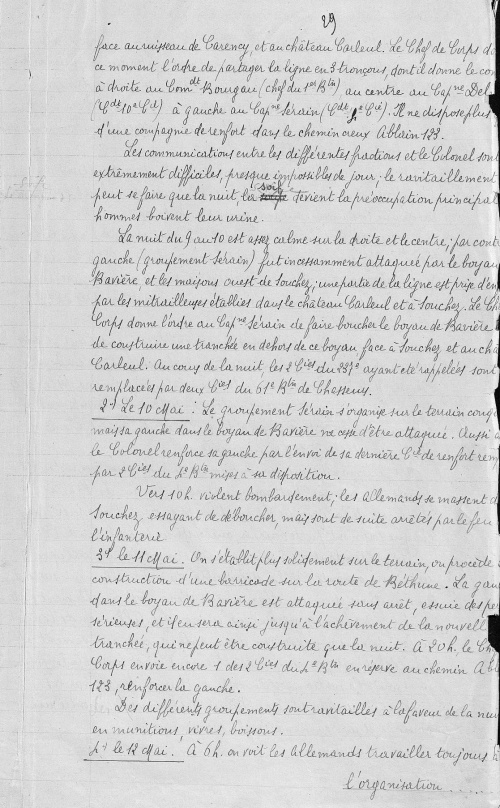 29
face au ruisseau de Carency, et au château Carleul. Le Chef de Corps do
ce moment l'ordre de partager la ligne en 3 tronçons, dont il donne le co
à droite au Comdt Bourgau (chef du 1er Btn) au centre au Capne Del
(Cdt 10e Cie) à gauche au Capne Sérain (Cdt Cie). Il ne dispose plus
d'une compagnie de renfort dans le chemin creux Ablain 123.
Les communications entre les différentes fractions et le Colonel sont
extrêmement difficiles, presque impossibles de jour; le ravitaillement
peut se faire que la nuit la soif devient la préoccupation principal
hommes boivent leur urine.
La nuit du 9 au 10 est assez calme sur la droite et le centre; par cont
gauche (groupement Sérain) fut incessamment attaquée par le boyau
Bavière, et les maisons ouest de Souchez; une partie de la ligne est prise d'en
par les mitrailleuses établies dans le château Carleul et à Souchez. Le Ch
Corps donne l'ordre au Capne Sérain de faire boucher le boyau de Bavière
de construire une tranchée en dehors de ce boyau face à Souchez et au châ
Carleul. Au cours de la nuit, les 2 Cies du 237e ayant été rappelées sont
remplacées par deux Cies du 61e Btn de Chasseurs.
2º/ Le 10 Mai: Le groupement Sérain s'organise sur le terrain conq
mais sa gauche dans le boyau de Bavière ne cesse d'être attaquée. Aussi
le Colonel renforce sa gauche par l'envoi de sa dernière Cie de renfort rem
par 2 Cies du 4e Btn mises à sa disposition.
Vers 10h. violent bombardement; les allemands se massent d
Souchez, essayant de déboucher, mais sont de suite arrêtés par le feu
l'infanterie
3º/ le 11 Mai. On s'établit plus solidement sur le terrain, on procède
construction d'une barricade sur la route de Béthune. La gau
dans le boyau de Bavière est attaquée sans arrêt, essuie des pe
sérieuses, et il en sera ainsi jusqu'à l'achèvement de la nouvell
tranchée, qui ne peut être construite que la nuit. À 20h. le Ch
Corps envoie encore 1 des 2 Cies du 4e Btn en réserve au chemin Abl
123, renforcer la gauche.
Des différents groupements sont ravitaillés à la faveur de la nui
en munitions, vivres, boissons.
4º/ le 12 Mai. À 6h. on voit les allemands travailler toujours
l'organisation